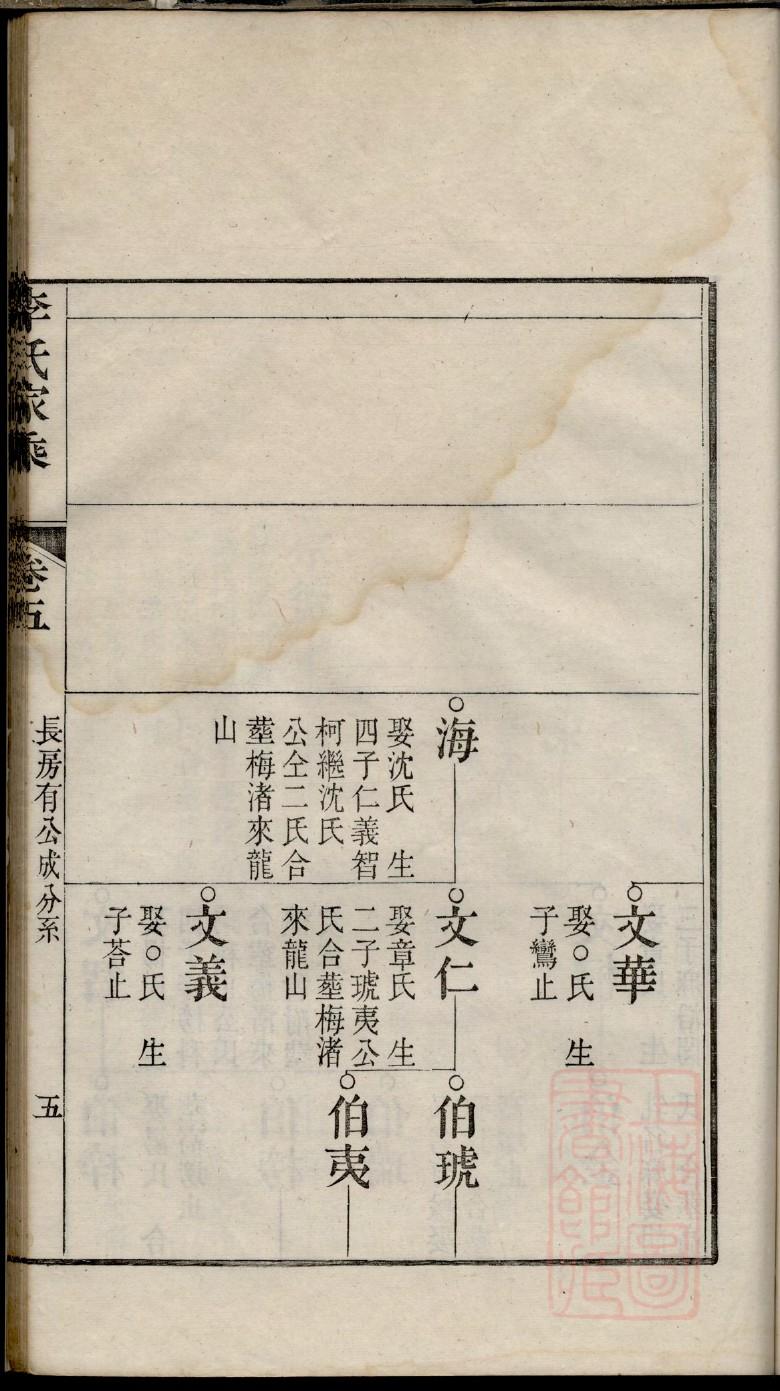 文華
娶○氏　生
子鸞止
海
娶沈氏　生
四子仁義智
柯繼沈氏
公仝二氏合
塟梅渚來龍
山
文仁
娶章氏　生
二子琥夷公
氏合塟梅渚
來龍山
伯琥
伯夷
文義
娶○氏　生
子荅止
李氏家乘
卷五
長房有公成分系
五